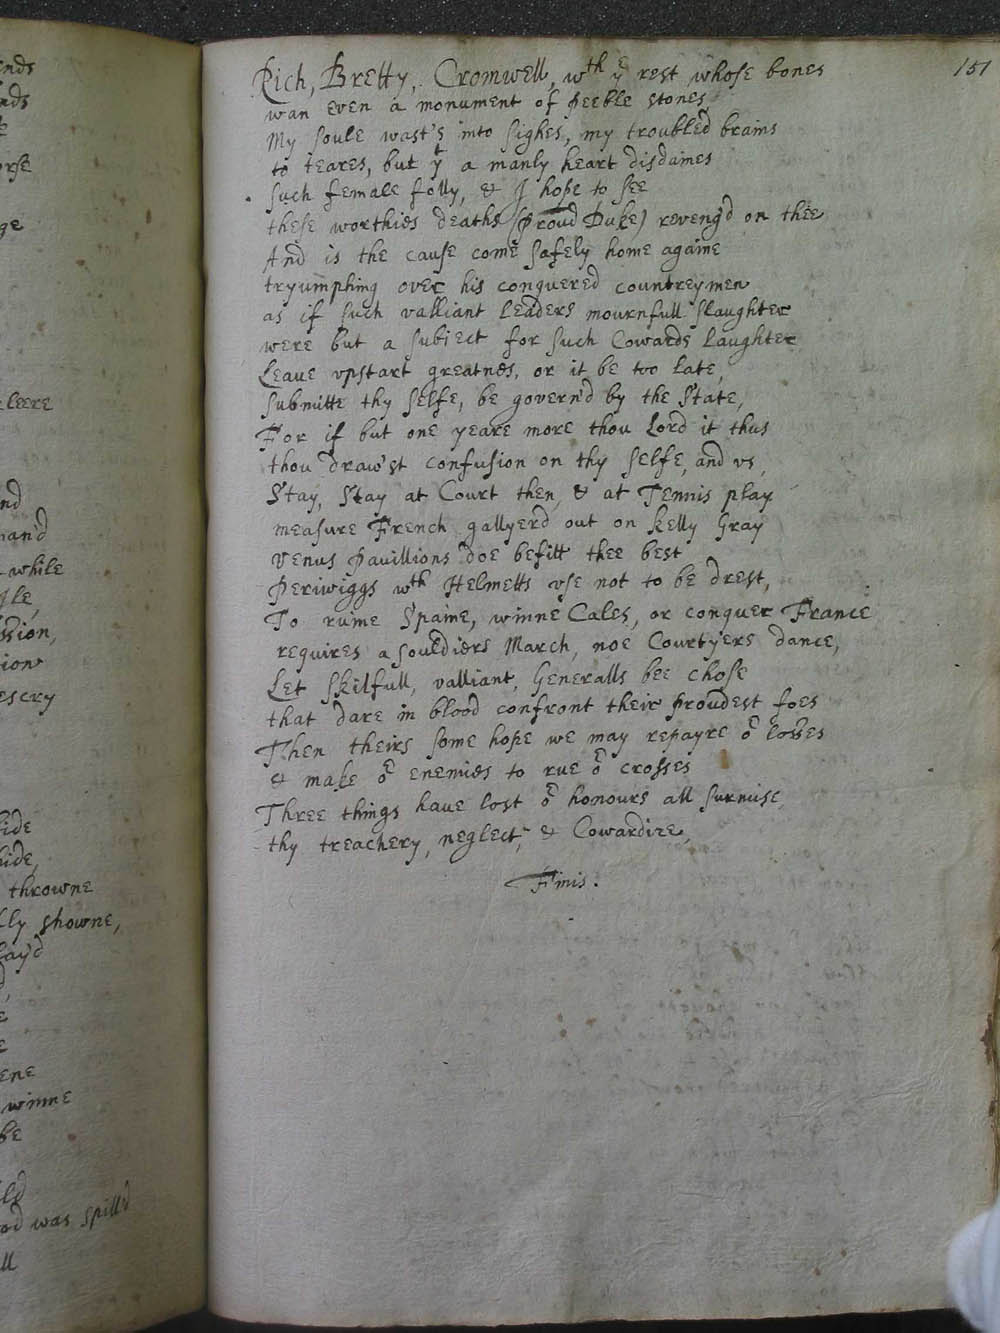 ends
nds
orse
ge
leere
nd
man'd
while
Ile,
ssion,
tion
escry
hide
hide,
throwne
lly showne,
lay'd
ene
winne
be
ood was spill'd
ll
151
Rich, Bretty, Cromwell, wth ye rest whose bones
wan even a monument of peeble stones
My soule wast's into sighes, my troubled brains
to teares, but yt a manly heart disdaines
such female folly, & I hope to see
these worthies deaths (proud Duke) reveng'd on thee
And is the cause come safely home againe
tryumphing over his conquered countreymen
as if such valliant Leaders mournfull slaughter
were but a subiect for such Cowards laughter
Leave vpstart greatnes, or it be too late,
submitte thy selfe, be govern'd by the State,
For if but one yeare more thou Lord it thus
thou draw'st confusion on thy selfe, and vs,
Stay, Stay at Court then, & at Tennis play
measure French gallyerd out on kelly Gray
Venus Pavillions doe befitt thee best
Periwiggs wth Helmetts vse not to be drest,
To ruine Spaine, winne Cales, or conquer France
requires a souldiers March, noe Courtyers dance,
Let skilfull, valliant, Generalls bee chose
that dare in blood confront their proudest foes
Then theirs some hope we may repayre or losses
& make or enemies to rue or crosses
Three things have lost or honours all surmise
thy treachery, neglect, & Cowardize,
Finis.